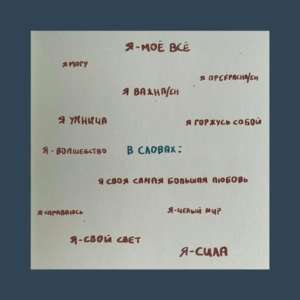 Я - МОЁ ВСЁ
Я МОГУ
Я ПРЕКРАСНА/ЕН
Я ВАЖНА/ЕН
Я УМНИЦА
Я ГОРЖУСЬ СОБОЙ
Я - ВОЛШЕБСТВО
В СЛОВАХ:
Я СВОЯ САМАЯ БОЛЬШАЯ ЛЮБОВЬ
Я СПРАВЛЮСЬ
Я - ЦЕЛЫЙ МИР
Я - СВОЙ СВЕТ
Я - СИЛА